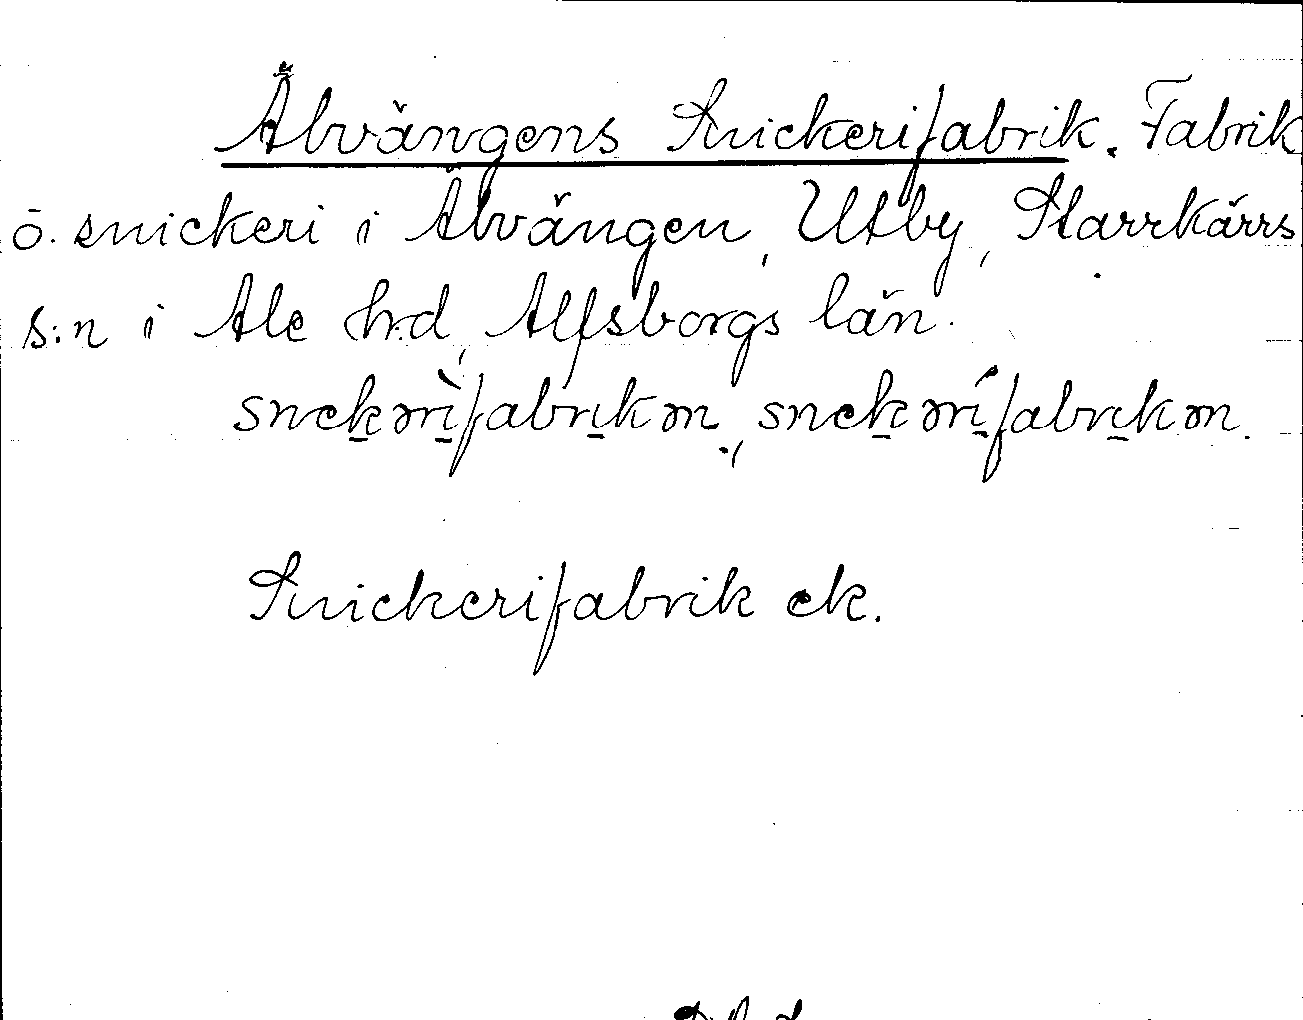 Älvängens Snickerifabrik. Fabrik
o. snickeri i Älvängen, Utby, Starrkärrs
s:n i Ale hd, Älfsborgs län.
snekərìfabrikən, snekərífabrikən.
Snickerifabrik ek.